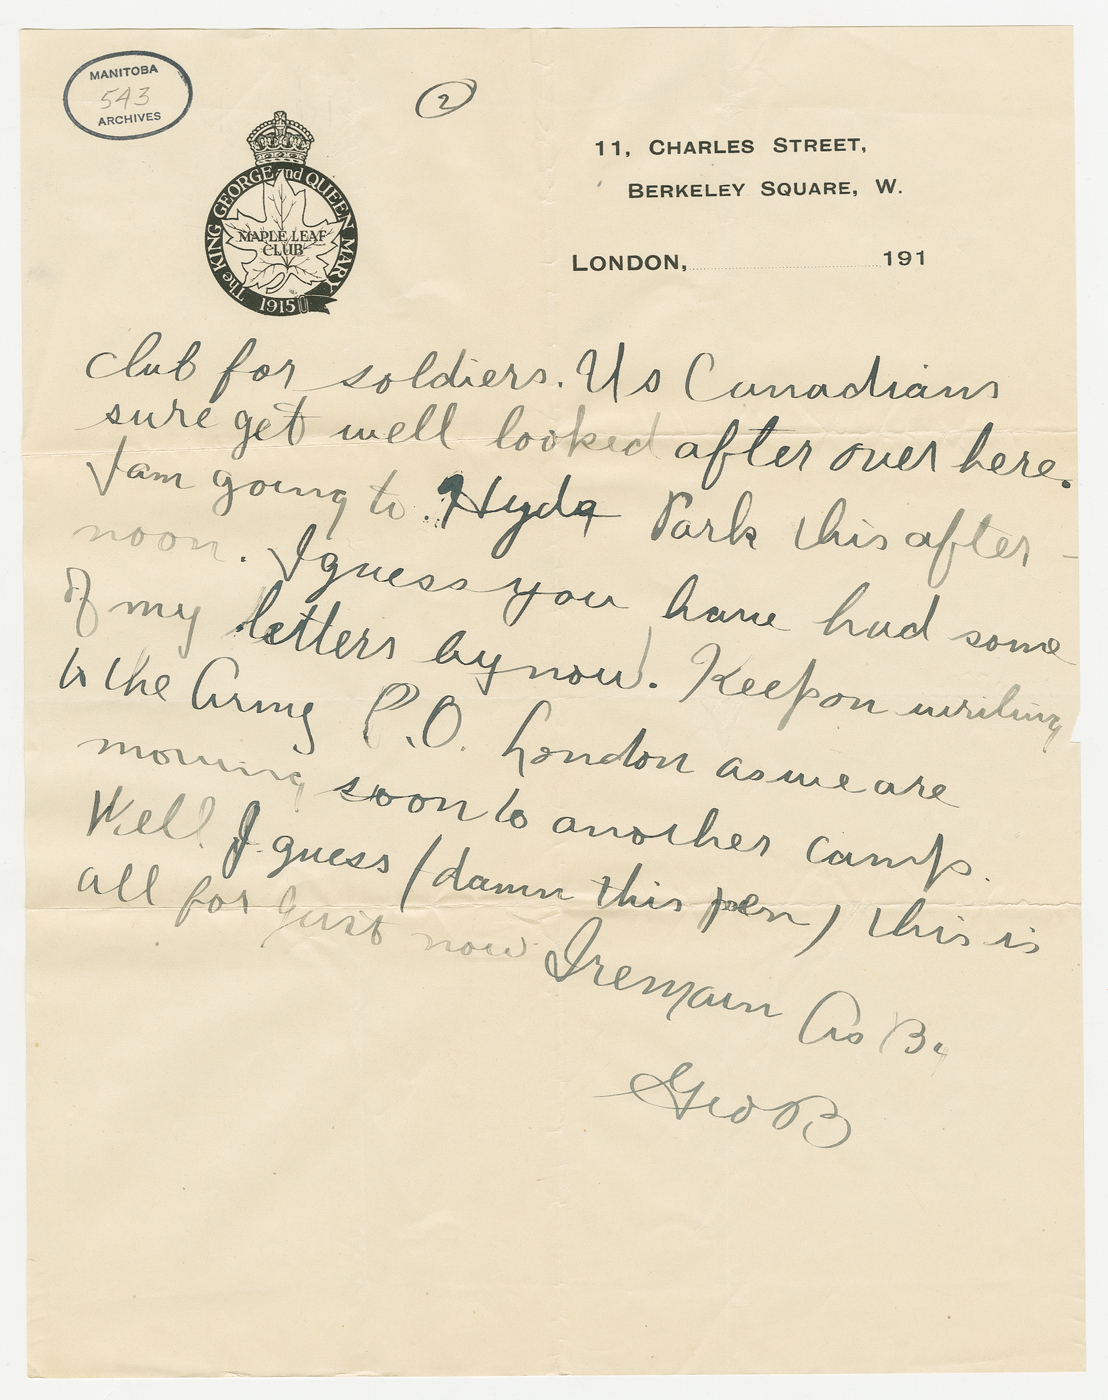 MANITOBA
543
ARCHIVES
2
The KING GEORGE and QUEEN MARY
MAPLE LEAF
CLUB
1915
11, CHARLES STREET,
BERKELEY SQUARE, W.
LONDON, 191
club for soldiers. Us Canadians
sure get well looked after over here.
I am going to Hyde Park this after-
noon. I guess you have had some
of my letters by now. Keep on writing
to the Army P.O. London as we are
moving soon to another camp.
Well I guess (damn this pen) this is
all for just now I remain As B.
Geo B